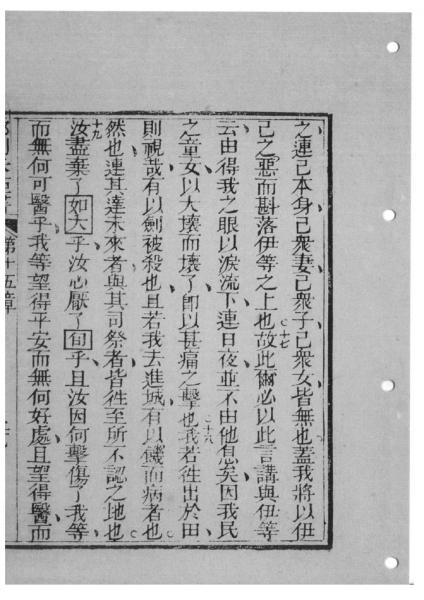 之連己本身己衆妻己衆子己衆女皆無也蓋我將以伊
己之惡而斟落伊等之上也十七故此爾必以此言講與伊等
云由得我之眼以淚流下連日夜並不由他息矣因我民
之童女以大壞而壞了卽以甚痛之擊也十八我若徃出於田
則視哉有以劍被殺也且若我去進城有以饑而病者也
然也連其達未來者與其司祭者皆徃至所不認之地也
十九汝盡棄了如大乎汝心厭了旬乎且汝因何擊傷了我等
而無何可醫乎我等望得平安而無何好處且望得醫而
第十五章